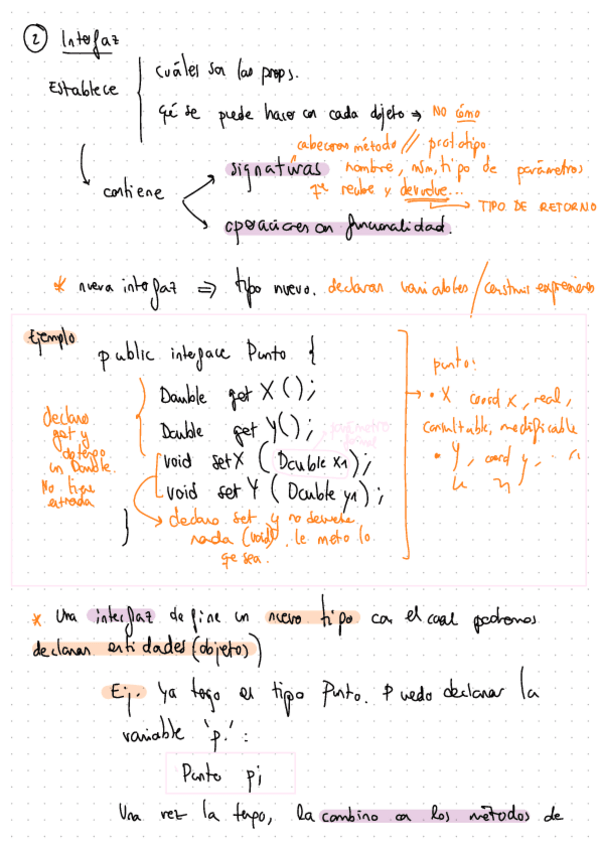 ② Interfaz
Establece
cuáles son las props.
qé se puede hacer con cada objeto → No cómo
cabeceras método // prototipo
contiene
signaturas nombre, núm, tipo de parámetros
qe recibe y devuelve...
→ TIPO DE RETORNO
operaciones con funcionalidad.
* nueva interfaz ⇒ tipo nuevo. declarar variables / construir expresiones
Ejemplo
public interface Punto {
Double get X ();
Double get Y();
void set X ( Double x1);
void set Y ( Double y1);
}
parámetro
formal
declaro
get y
obtengo
un Double.
No tiene
entrada
→ declaro set y no devuelve
nada (void). le meto lo
qe sea.
punto:
• X coord x, real,
consultable, modificable
• Y, coord y, ...
* Una interfaz define un nuevo tipo con el cual podremos
declarar entidades (objeto)
Ej. Ya tengo el tipo Punto. Puedo declarar la
variable 'p':
Punto p;
Una vez la tengo, la combino con los métodos de